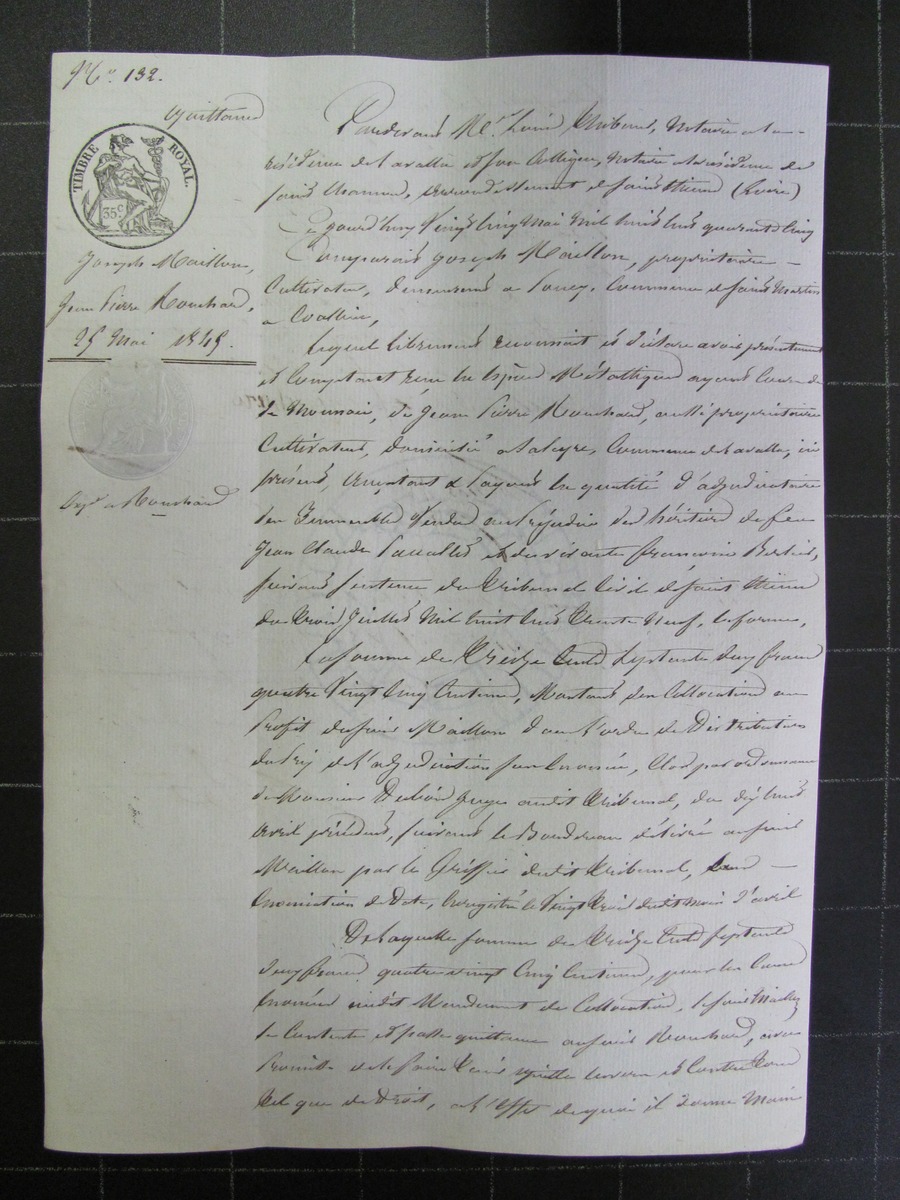 N.º 132.
quittance
TIMBRE ROYAL.
35 C
Joseph Maillon,
Jean Pierre Rouchard,
25 Mai 1845.
Exp.on a Rouchard
Pardevant M.e Louis notaire a la
résidence de Lavalla et son Collègue, notaire a la résidence de
saint Chamond, arrondissement de saint Etienne (Loire)
Ce jourd'huy Vingt Cinq Mai mil huit Cent quarante Cinq
Comparait Joseph Maillon, propriétaire
Cultivateur, demeurant a Commune de saint Martin
a Coallieu,
Lequel librement reconnait et déclare avoir présentement
et Comptant reçu en Espèces Métalliques ayant Cours de
de Monnaie, de Jean Pierre Rouchard, aussi propriétaire
Cultivateur, domicilié a Commune de Lavalla, ici
présent, acceptant & payant en qualité d'adjudicataire
des Immeubles Vendus au Préjudice des héritiers de feu
Jean Claude et de vivante françoise
suivant sentence du Tribunal Civil de saint Etienne
du Trois Juillet Mil huit Cent Trente Neuf, en forme,
La somme de Treize Cent Septante deux francs
quatre Vingt Cinq Centimes, Montant de sa Collocation au
Profit dudit Maillon dans l'ordre de Distribution
du Prix de l'adjudication sus énoncée, Clos par ordonnance
de Monsieur Juge audit Tribunal, du dix huit
avril précédent, suivant le Bordereau délivré audit
Maillon par le Greffier dudit Tribunal, sans
énonciation de Date, Enregistré le Vingt Trois dudit mois d'avril
De laquelle somme de Treize Cent Septante
deux francs quatre vingt Cinq Centimes, pour les Causes
énoncées audit Mandement de Collocation, ledit Maillon
se Contente et passe quittance audit Rouchard, avec
Promesse de le faire Tenir quitte Envers et Contre Tous
Tel que de Droit, a l'Effet de quoi il donne Main